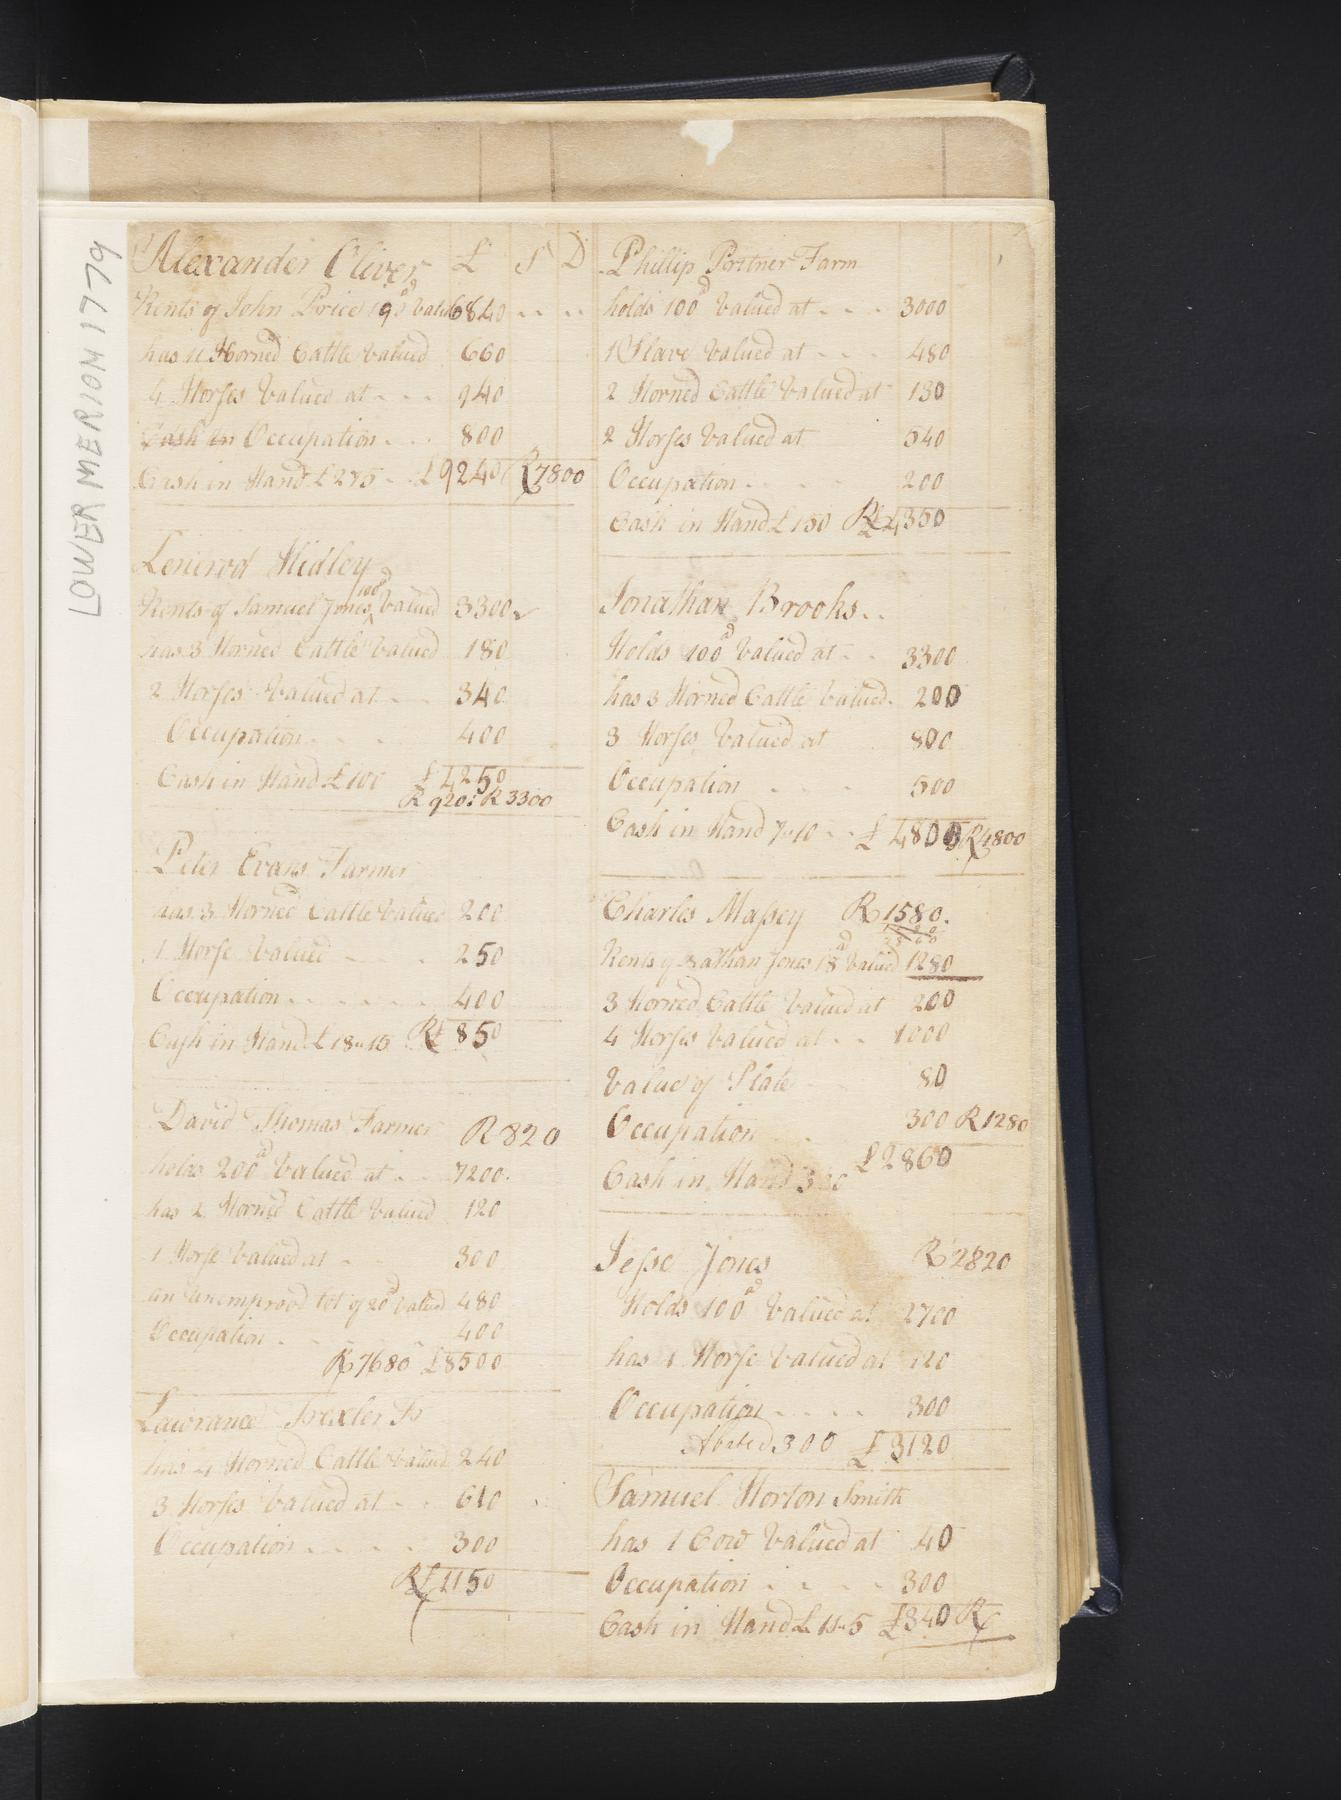 LOWER MERION 1779
Alexander Oliver £ S D
Rents of John Price 190ad Valud 6840
has 11 Horned Cattle Valued 660
4 Horses Valued at 940
Cash in Occupation 800
Cash in Hand £275 £9240 R 7800
Henry Hidley
Rents of Samuel Jones 100ad Valued 3300
has 3 Horned Cattle Valued 180
2 Horses Valued at 340
Occupation 400
Cash in Hand £100 £4250
R 920: R 3300
Peter Evans Farmer
has 3 Horned Cattle Valued 200
1 Horse Valued 250
Occupation 400
Cash in Hand £18..15 R £ 850
David Thomas Farmer R 820
holds 200ad Valued at 7200
has 2 Horned Cattle Valued 120
1 Horse Valued at 300
an unemprood lot of 20ad Valued 480
Occupation 400
R 7680 £8500
Lawrance Trexler Fr
has 4 Horned Cattle Valued 240
3 Horses Valued at 610
Occupation 300
R £1150
Phillip Portner Farm
holds 100ad Valued at 3000
1 Slave Valued at 480
2 Horned Cattle Valued at 130
2 Horses Valued at 540
Occupation 200
Cash in Hand £150 R £4350
Jonathan Brooks
Holds 100ad Valued at 3300
has 3 Horned Cattle Valued 200
3 Horses Valued at 800
Occupation 500
Cash in Hand 7..10 £ 4800 R 4800
Charles Massey R 1580.
Rents of Nathan Jones 18ad Valued 1280
3 Horned Cattle Valued at 200
4 Horses Valued at 1000
Value of Plate 80
Occupation 300 R 1280
£2860
Cash in Hand
Jesse Jones R 2820
Holds 100ad Valued at 2700
has 1 Horse Valued at 120
Occupation 300
Abated 300 £3120
Samuel Horton Smith
has 1 Cow Valued at 40
Occupation 300
Cash in Hand £11..5 £340 R